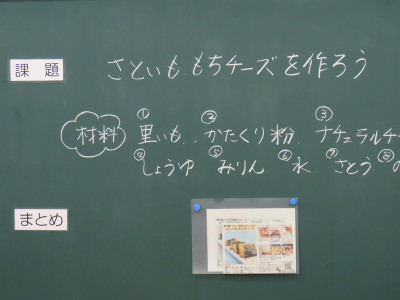 課題
さといももちチーズを作ろう
材料 ①里いも、②かたくり粉 ③ナチュラルチ
④しょうゆ ⑤みりん ⑥水 ⑦さとう ⑧の
まとめ